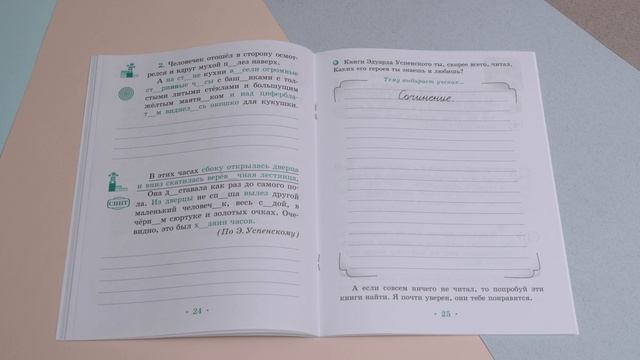 2. Человечек отошёл в сторону осмот-
релся и вдруг мухой п__лез наверх.
А на ст__не кухни в__сели огромные
ст__ринные ч__сы с баш__нками с тол-
стыми литыми стёклами и большущим
жёлтым маятн__ком и над цифербла-
т__м виднел__сь окошко для кукушки.
В этих часах сбоку открылась дверца
и вниз скатилась верёв__чная лестница.
Она д__ставала как раз до самого по-
ла. Из дверцы не сп__ша вылез другой
маленький человеч__к, весь с__дой, в
чёрн__м сюртуке и золотых очках. Оче-
видно, это был х__зяин часов.
(По Э. Успенскому)
• 24 •
Книги Эдуарда Успенского ты, скорее всего, читал.
Каких его героев ты знаешь и любишь?
Тему выбирает ученик...
Сочинение.
А если совсем ничего не читал, то попробуй эти
книги найти. Я почти уверен, они тебе понравятся.
• 25 •